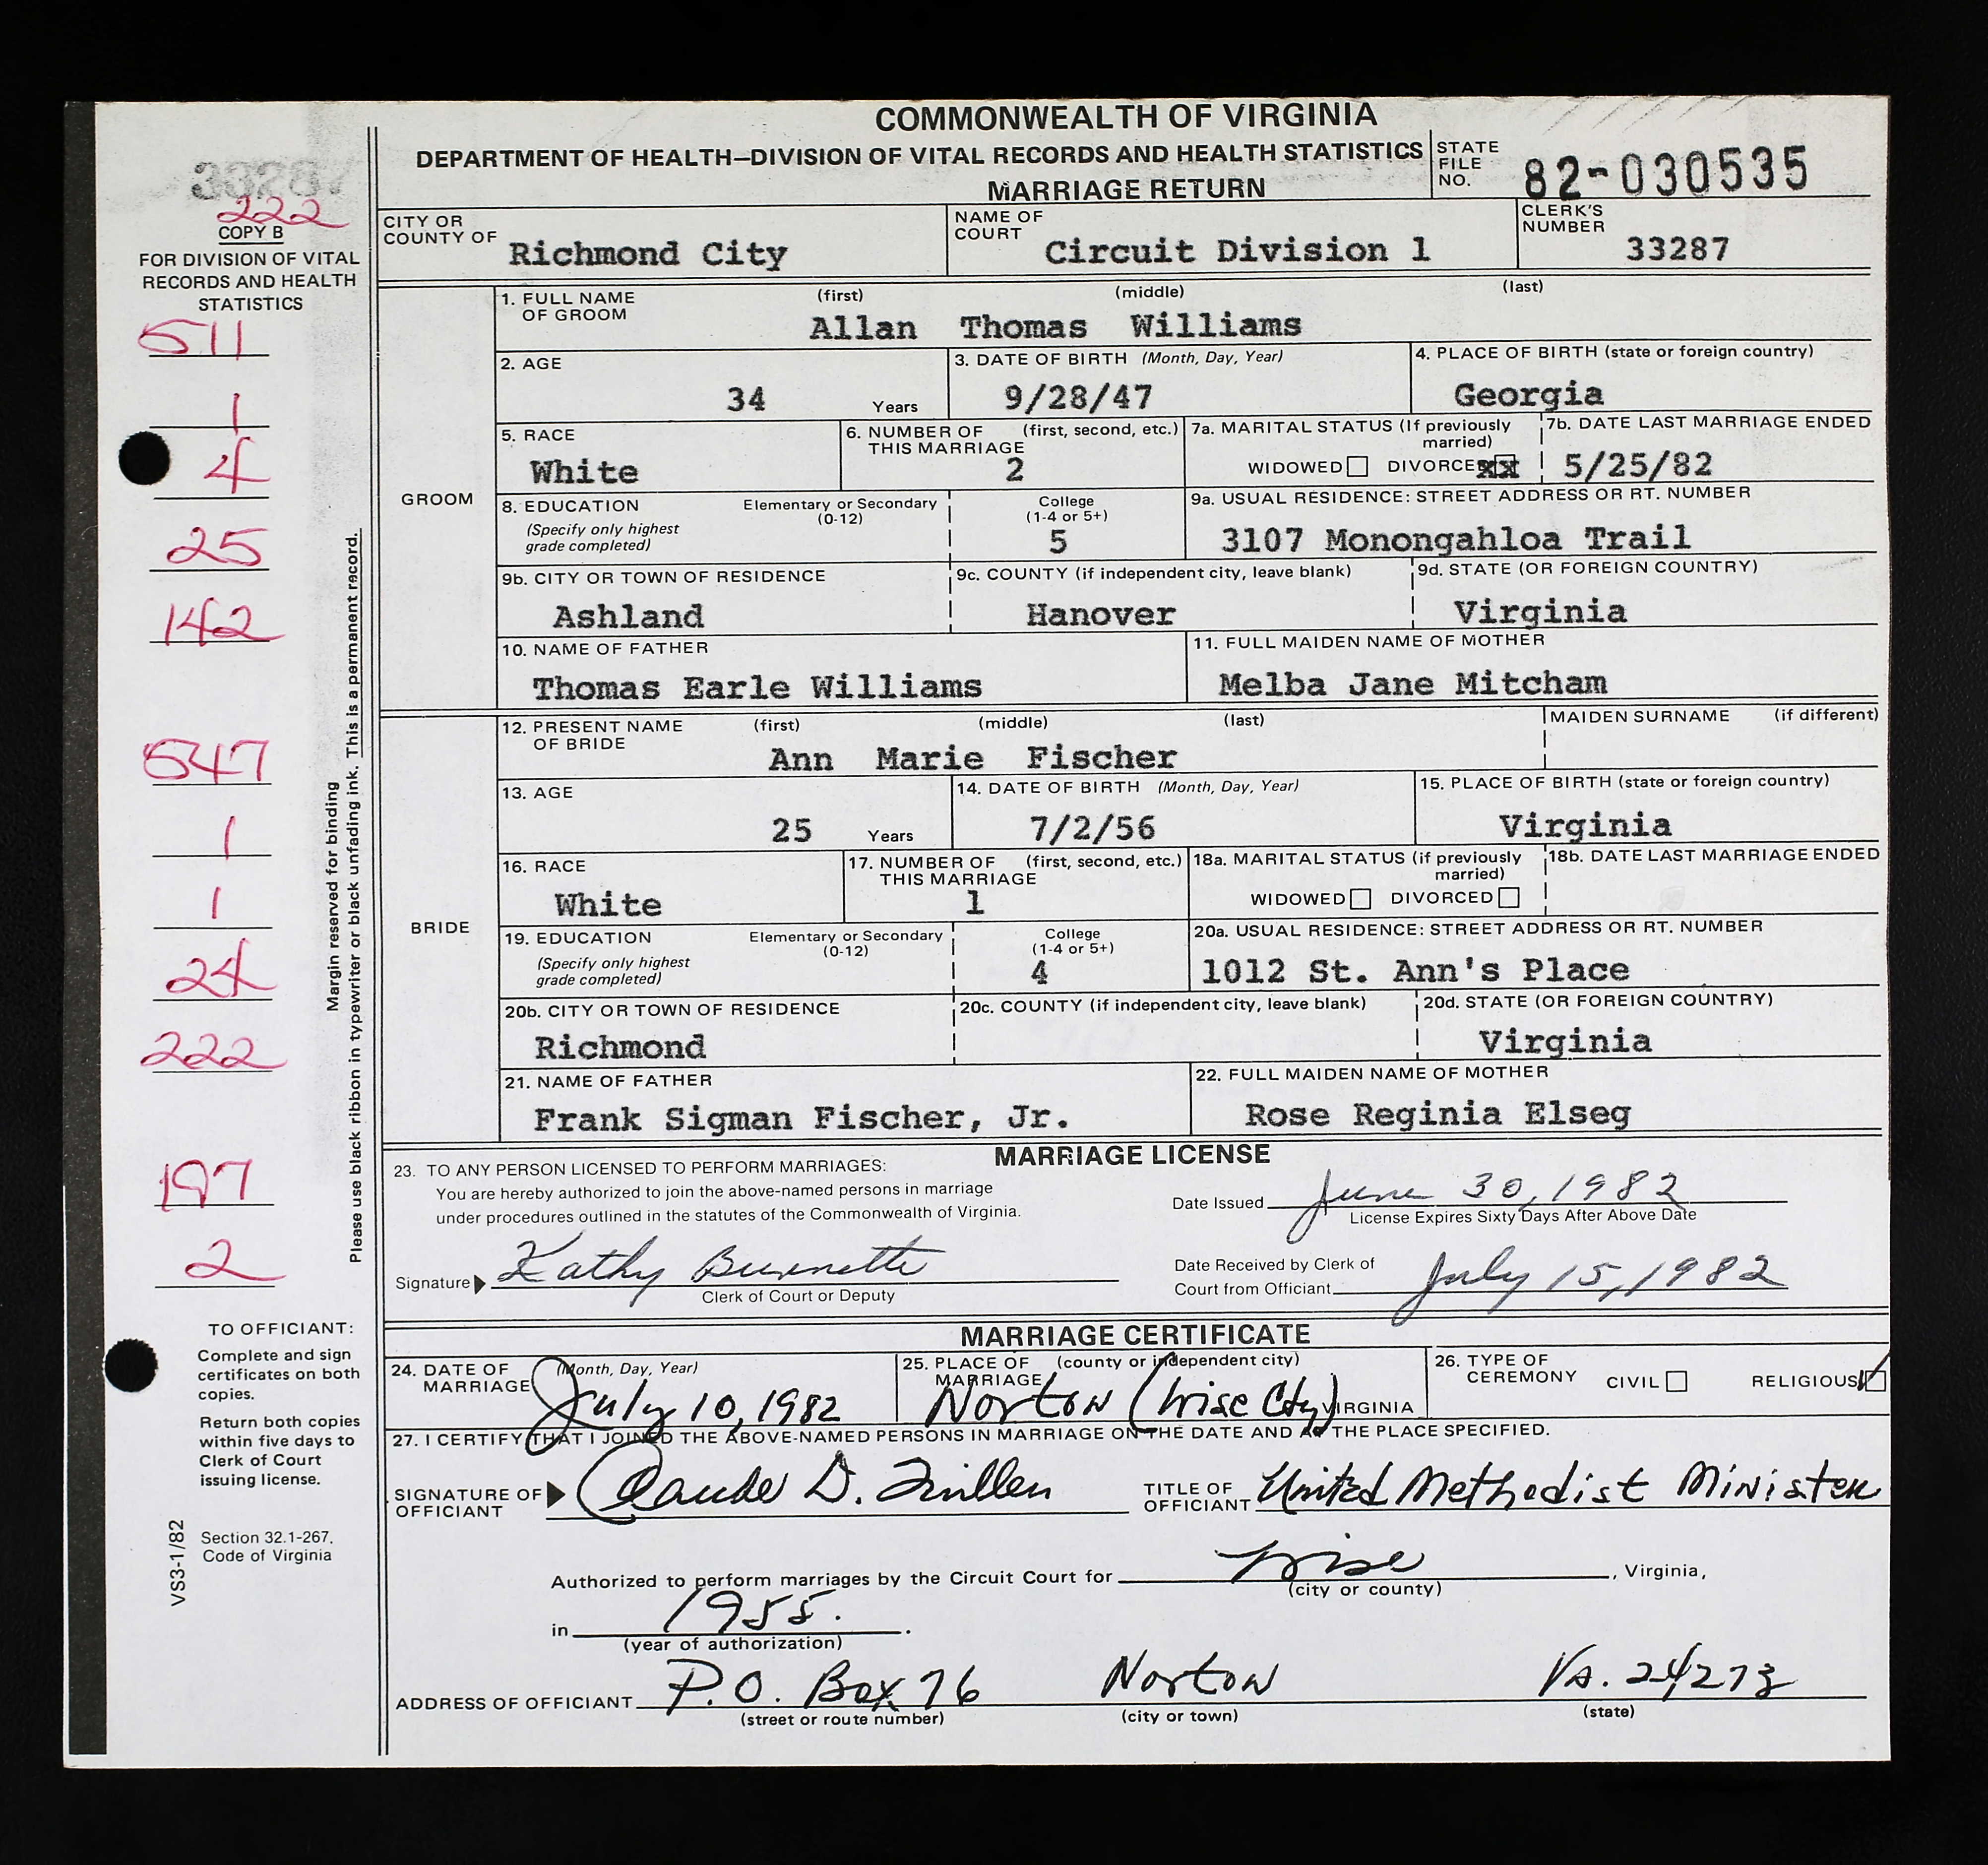 COMMONWEALTH OF VIRGINIA
DEPARTMENT OF HEALTH—DIVISION OF VITAL RECORDS AND HEALTH STATISTICS
MARRIAGE RETURN
STATE FILE NO. 82-030535
33287
222
COPY B
FOR DIVISION OF VITAL
RECORDS AND HEALTH
STATISTICS
511
1
4
25
142
547
1
1
24
222
197
2
Margin reserved for binding
Please use black ribbon in typewriter or black unfading ink. This is a permanent record.
TO OFFICIANT:
Complete and sign
certificates on both
copies.
Return both copies
within five days to
Clerk of Court
issuing license.
Section 32.1-267,
Code of Virginia
VS3-1/82
CITY OR COUNTY OF Richmond City
NAME OF COURT Circuit Division 1
CLERK'S NUMBER 33287
GROOM
1. FULL NAME OF GROOM (first) (middle) (last)
Allan Thomas Williams
2. AGE 34 Years
3. DATE OF BIRTH (Month, Day, Year) 9/28/47
4. PLACE OF BIRTH (state or foreign country) Georgia
5. RACE White
6. NUMBER OF THIS MARRIAGE (first, second, etc.) 2
7a. MARITAL STATUS (If previously married) WIDOWED DIVORCExx
7b. DATE LAST MARRIAGE ENDED 5/25/82
8. EDUCATION (Specify only highest grade completed) Elementary or Secondary (0-12) College (1-4 or 5+) 5
9a. USUAL RESIDENCE: STREET ADDRESS OR RT. NUMBER 3107 Monongahloa Trail
9b. CITY OR TOWN OF RESIDENCE Ashland
9c. COUNTY (if independent city, leave blank) Hanover
9d. STATE (OR FOREIGN COUNTRY) Virginia
10. NAME OF FATHER Thomas Earle Williams
11. FULL MAIDEN NAME OF MOTHER Melba Jane Mitcham
BRIDE
12. PRESENT NAME OF BRIDE (first) (middle) (last) MAIDEN SURNAME (if different)
Ann Marie Fischer
13. AGE 25 Years
14. DATE OF BIRTH (Month, Day, Year) 7/2/56
15. PLACE OF BIRTH (state or foreign country) Virginia
16. RACE White
17. NUMBER OF THIS MARRIAGE (first, second, etc.) 1
18a. MARITAL STATUS (if previously married) WIDOWED DIVORCED
18b. DATE LAST MARRIAGE ENDED
19. EDUCATION (Specify only highest grade completed) Elementary or Secondary (0-12) College (1-4 or 5+) 4
20a. USUAL RESIDENCE: STREET ADDRESS OR RT. NUMBER 1012 St. Ann's Place
20b. CITY OR TOWN OF RESIDENCE Richmond
20c. COUNTY (if independent city, leave blank)
20d. STATE (OR FOREIGN COUNTRY) Virginia
21. NAME OF FATHER Frank Sigman Fischer, Jr.
22. FULL MAIDEN NAME OF MOTHER Rose Reginia Elseg
MARRIAGE LICENSE
23. TO ANY PERSON LICENSED TO PERFORM MARRIAGES:
You are hereby authorized to join the above-named persons in marriage
under procedures outlined in the statutes of the Commonwealth of Virginia.
Date Issued June 30, 1982
License Expires Sixty Days After Above Date
Signature Kathy Burnette
Clerk of Court or Deputy
Date Received by Clerk of
Court from Officiant July 15, 1982
MARRIAGE CERTIFICATE
24. DATE OF MARRIAGE (Month, Day, Year) July 10, 1982
25. PLACE OF MARRIAGE (county or independent city) Norton (Wise Cty) VIRGINIA
26. TYPE OF CEREMONY CIVIL RELIGIOUS
27. I CERTIFY THAT I JOINED THE ABOVE-NAMED PERSONS IN MARRIAGE ON THE DATE AND AT THE PLACE SPECIFIED.
SIGNATURE OF OFFICIANT Claude D.
TITLE OF OFFICIANT United Methodist Minister
Authorized to perform marriages by the Circuit Court for Wise, Virginia,
(city or county)
in 1955.
(year of authorization)
ADDRESS OF OFFICIANT P.O. Box 76 Norton Va. 24273
(street or route number) (city or town) (state)